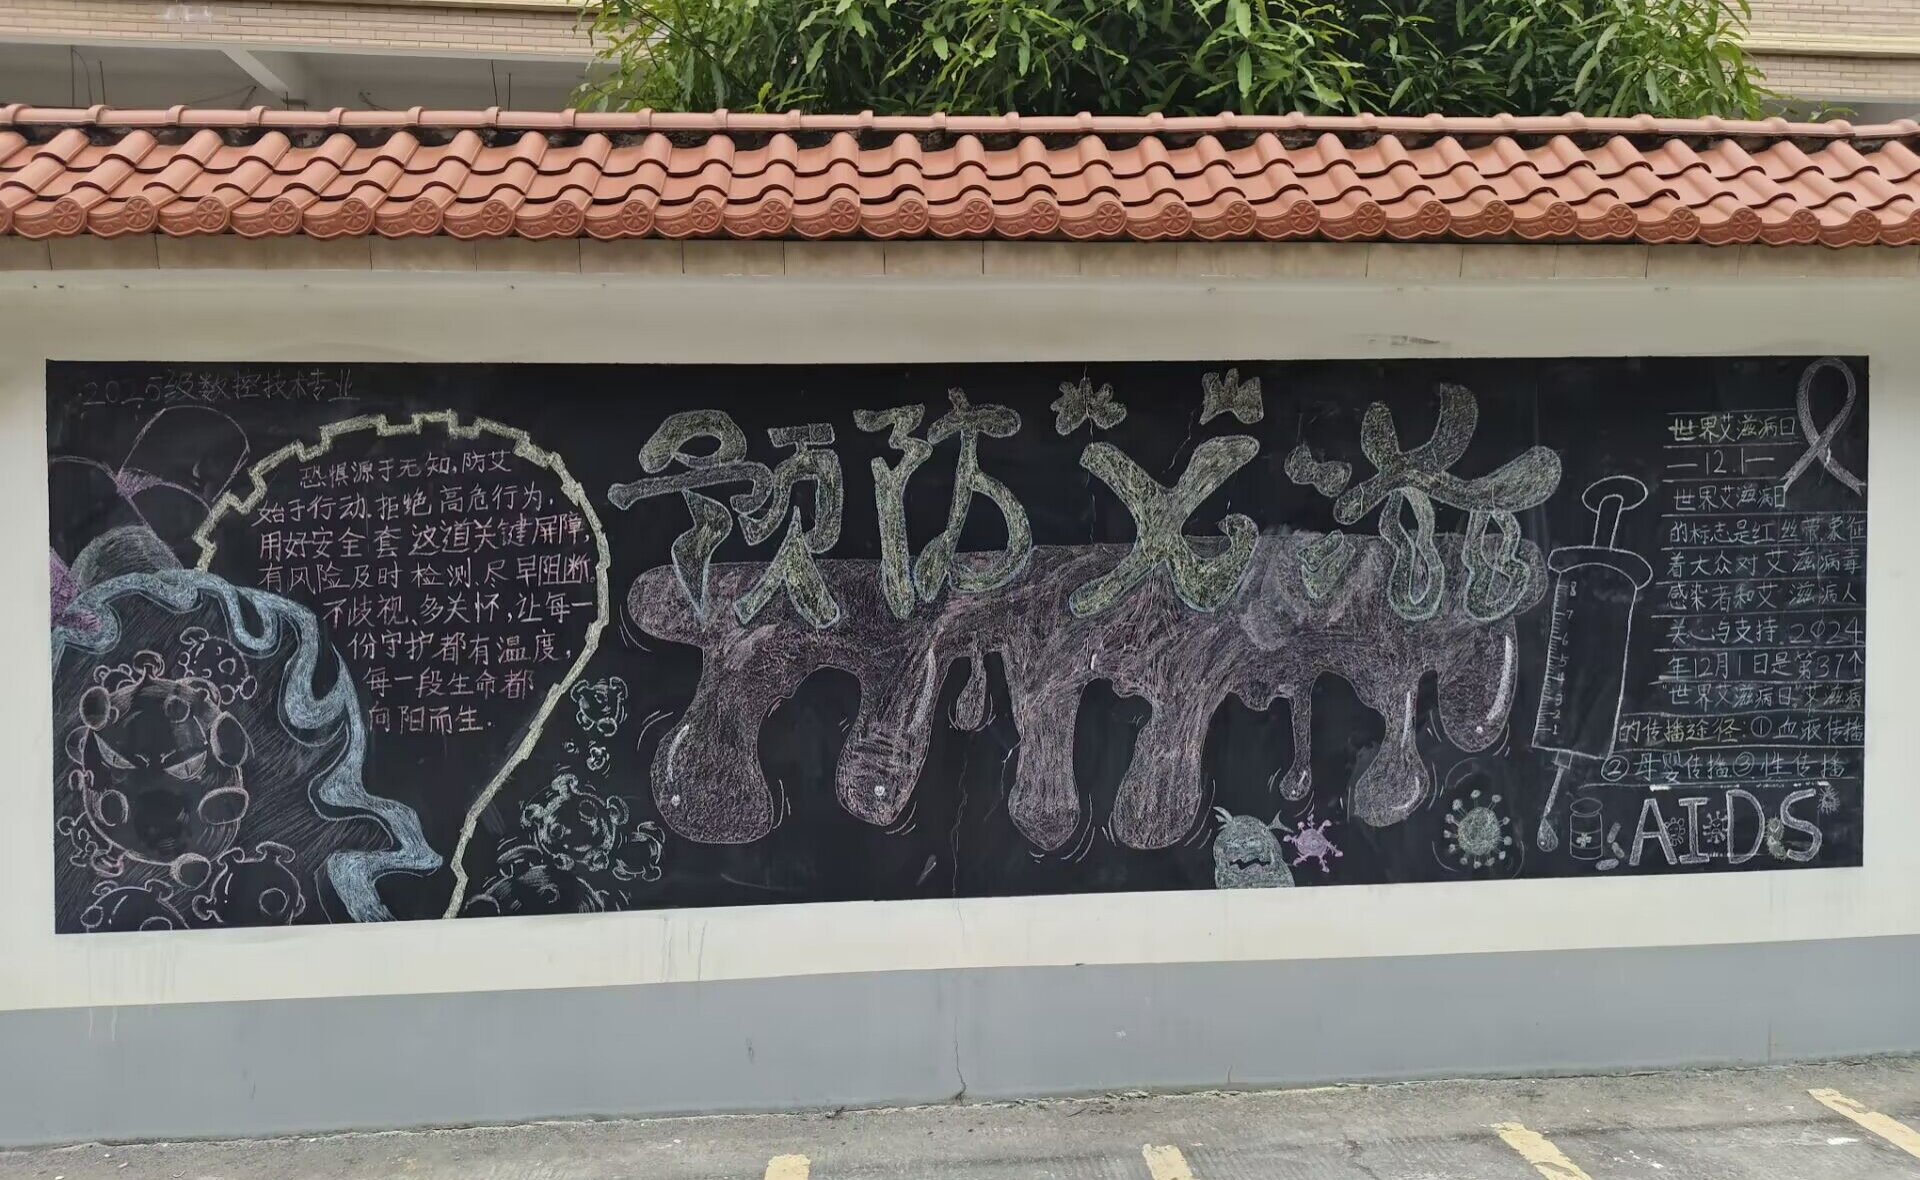 2025级数控技术专业
恐惧源于无知,防艾
始于行动.拒绝高危行为,
用好安全套这道关键屏障,
有风险及时检测、尽早阻断。
不歧视、多关怀,让每一
份守护都有温度,
每一段生命都
向阳而生.
预防艾滋
世界艾滋病日
—12.1—
世界艾滋病日
的标志是红丝带,象征
着大众对艾滋病毒
感染者和艾滋病人
关心与支持.2024
年12月1日是第37个
"世界艾滋病日"艾滋病
的传播途径:①血液传播
②母婴传播③性传播
8
7
6
5
4
3
2
1
AIDS